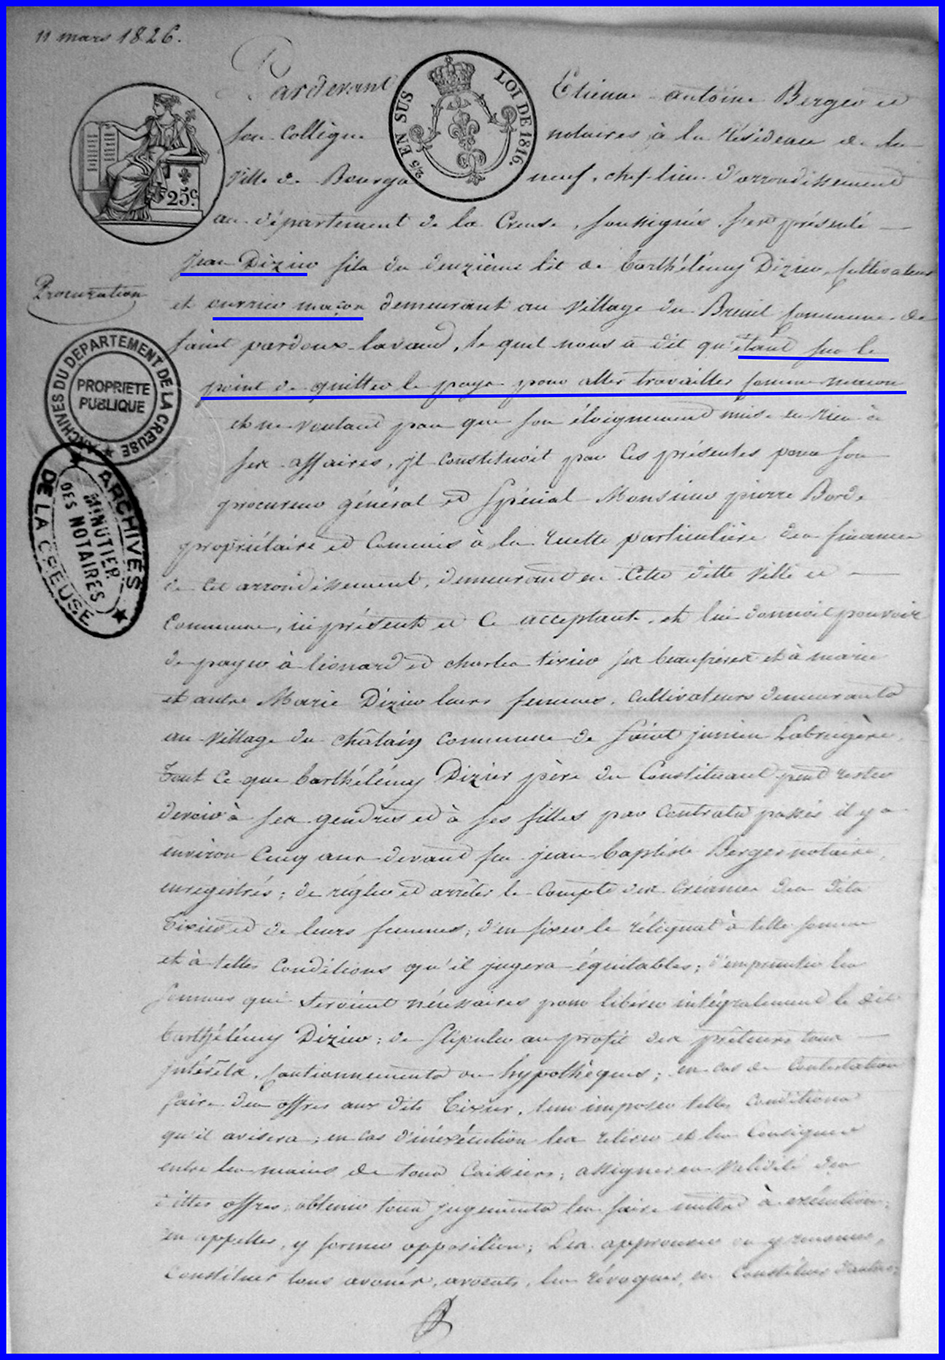 11 mars 1826.
Pardevant Etienne antoine Berger et
son collègue notaires à la résidence de la
ville de Bourganeuf, chef-lieu d'arrondissement
au département de la Creuse, soussignés s'est présenté
jean Dizier fils du deuxième lit de barthélémy Dizier, cultivateur
et ouvrier maçon demeurant au village du Breuil commune de
saint pardoux lavaud, le quel nous a dit qu'étant sur le
point de quitter le pays pour aller travailler comme maçon
et ne voulant pas que son éloignement mise en rien à
ses affaires, il constituoit par ces présentes pour son
procureur général et spécial Monsieur pierre Borde
propriétaire et commis à la recette particulière des finances
de cet arrondissement, demeurant en cette ditte ville et
commune, ici présent et ce acceptant, et lui donnoit pouvoir
de payer à léonard et charles tixier ses beaufrères et à marie
et autre Marie Dizier leurs femmes, cultivateurs demeurants
au village du châtain commune de saint junien Labruigère,
tout ce que barthélémy Dizier père du constituant peut rester
devoir à ses gendres et à ses filles par contrats passés il y a
environ cinq ans devant feu jean baptiste Berger notaire,
enregistrés; de régler et arrêter le compte des créances des dits
Tixier et de leurs femmes; d'en fixer le réliquat à telle somme
et à telles conditions qu'il jugera équitables; d'emprunter les
sommes qui seroient nécessaires pour libérer intégralement le dit
barthélémy Dizier; de stipuler au profit des prêteurs tous
intérêts, cautionnements ou hypothèques; en cas de contestation
faire des offres aux dits Tixier, leur imposer telles conditions
qu'il avisera; en cas d'inéxécution les retirer et les consigner
entre les mains de tous caissiers; assigner en validité des
dittes offres; obtenir tous jugements les faire mettre à exécution;
en appeller, y former opposition; Les approuver ou y renoncer,
constituer tous avoués, avocats, les révoquer, en constituer d'autres;
Procuration
25 EN SUS
LOI DE 1816.
25c.
ARCHIVES DU DEPARTEMENT DE LA CREUSE
PROPRIETE
PUBLIQUE
ARCHIVES
MINUTIER
DES NOTAIRES
DE LA CREUSE